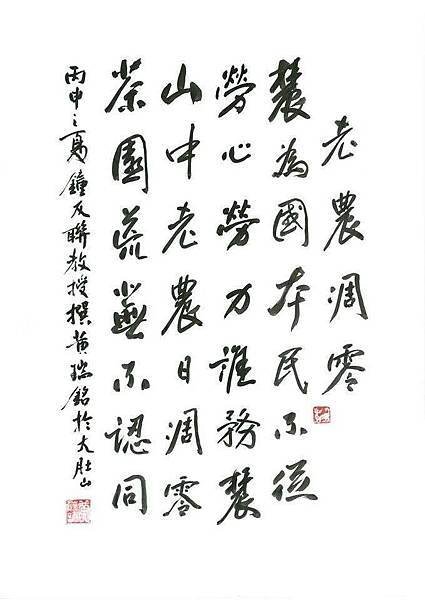 老農凋零
辳為國本民不從
勞心勞力誰務辳
山中老農日凋零
茶園荒蕪不認同
丙申之夏鐘友聯教授撰黃瑞銘於大肚山